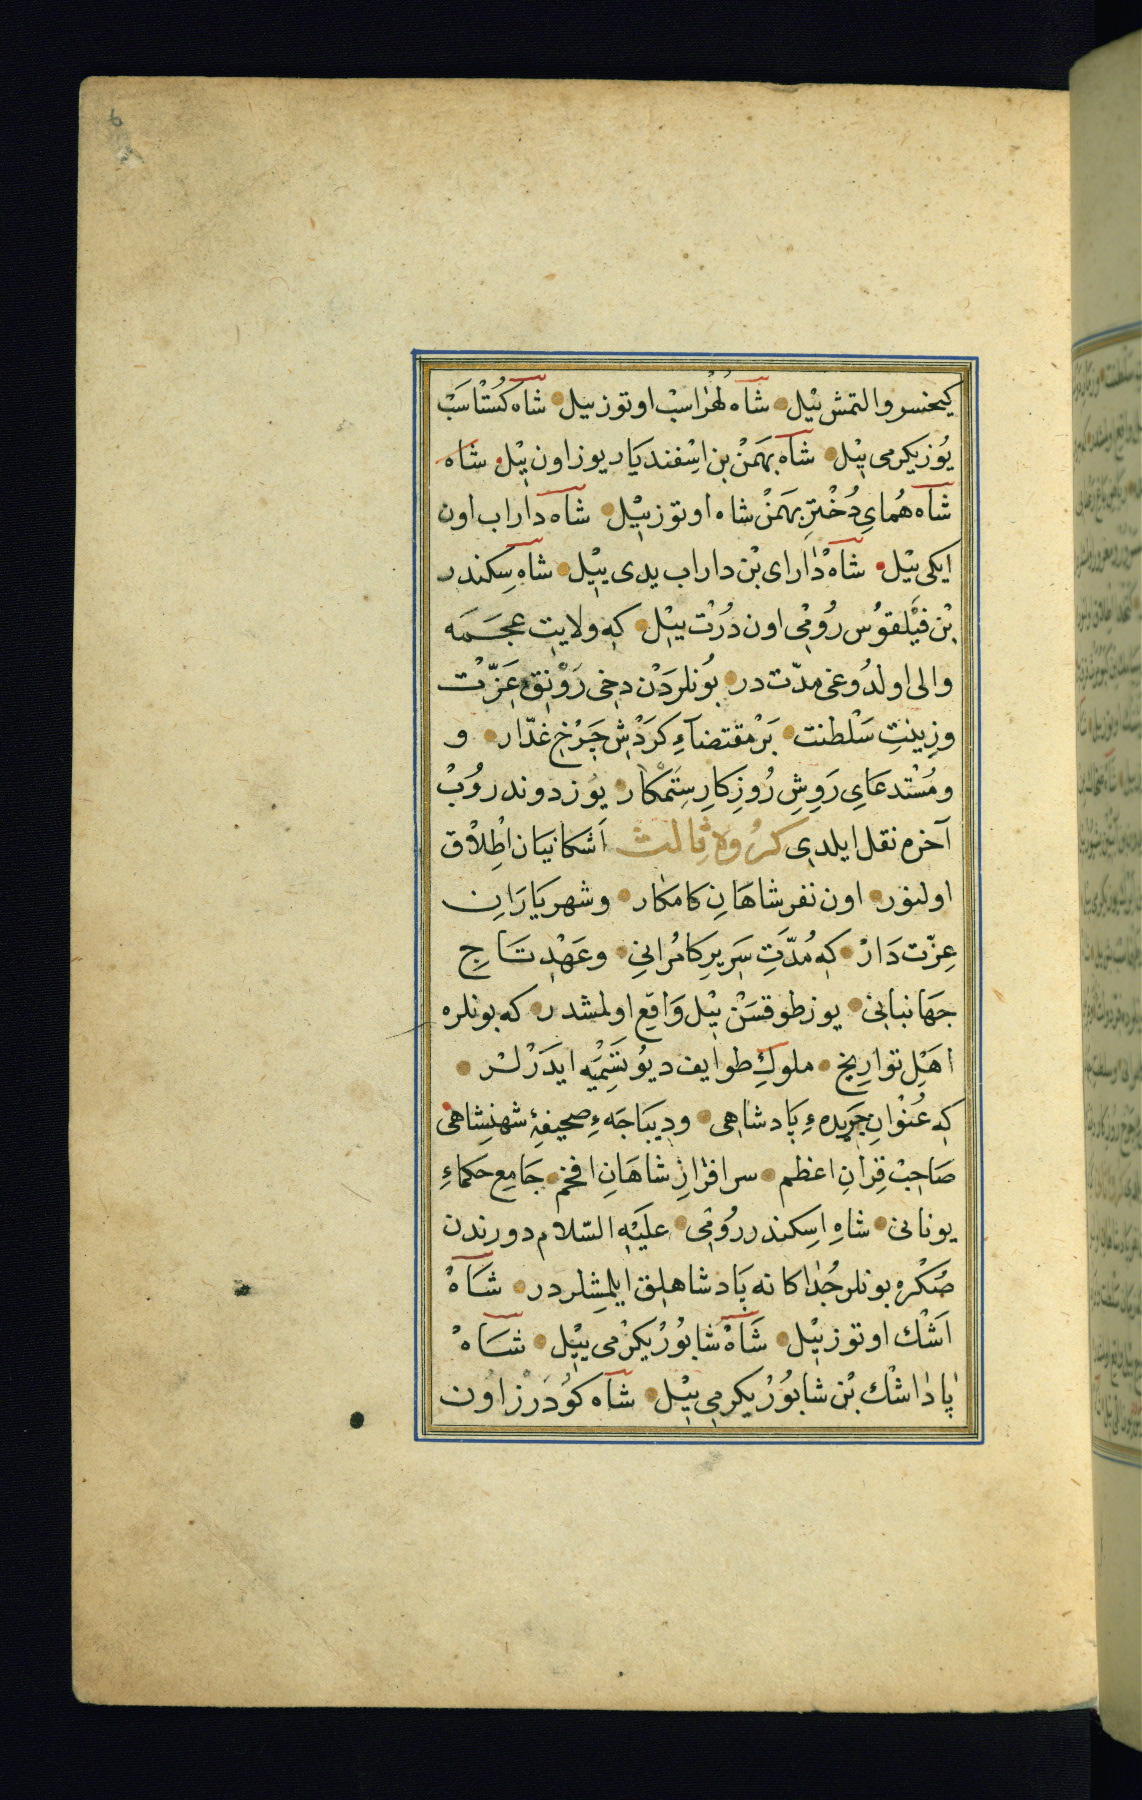 كیخسرو التمش ییل شاه لهراسب اوتوز ییل شاه كُستاسَب
یُوز یكرمی ییل شاه بهمن بن اسفندیار یوز اون ییل شاه
شاه همایِ دُختِرِ بهمن شاه اوتوز ییل شاه داراب اون
ایكی ییل شاه دارای بن داراب یدی ییل شاه سِكندر
بْن فَیْلقوُس رُومی اون دُرت ییل كه ولایتِ عجمَه
والی اولدُوغی مدّت در بُونلردَن دخی رَوْنق عَزّت
وزینتِ سَلطنت بَر مقتضآءِ كَردشِ چَرخِ غدّار و
ومُستدعایِ رَوشِ رُوزِكارِ ستمكار یوز دوندرُوب
آخره نقل ایلدی كروه ثالث اَشكانیان اطلاق
اولنور اون نفر شاهانِ كامكار وشهریارانِ
عِزّت دار كه مُدّتِ سَریرِ كامرانی وعَهدِ تاجِ
جهانبانی یوز طوقسَن ییل وَاقِع اولمشدر كه بونلره
اهلِ تواریخ ملوكِ طوایف دیو تَسْمِیَه ایدَرلر
كه عُنوانِ جریدهءِ پادشاهی ودیباجهءِ صحیفهٔ شهنشاهی
صَاحِب قِرانِ اعظم سرافرازِ شاهانِ افخم جَامِع حكماءِ
یونانی شاهِ اسكندر رُومی علَیْه السّلام دورندن
صُكره بونلر جُدا كانه پادشاهلق ایلمشلردر شَاه
اَشك اوتوز ییل شَاه شابُور یكرمی ییل شَاه
پاداشك بن شابُور یكرمی ییل شاه كُودَرز اون